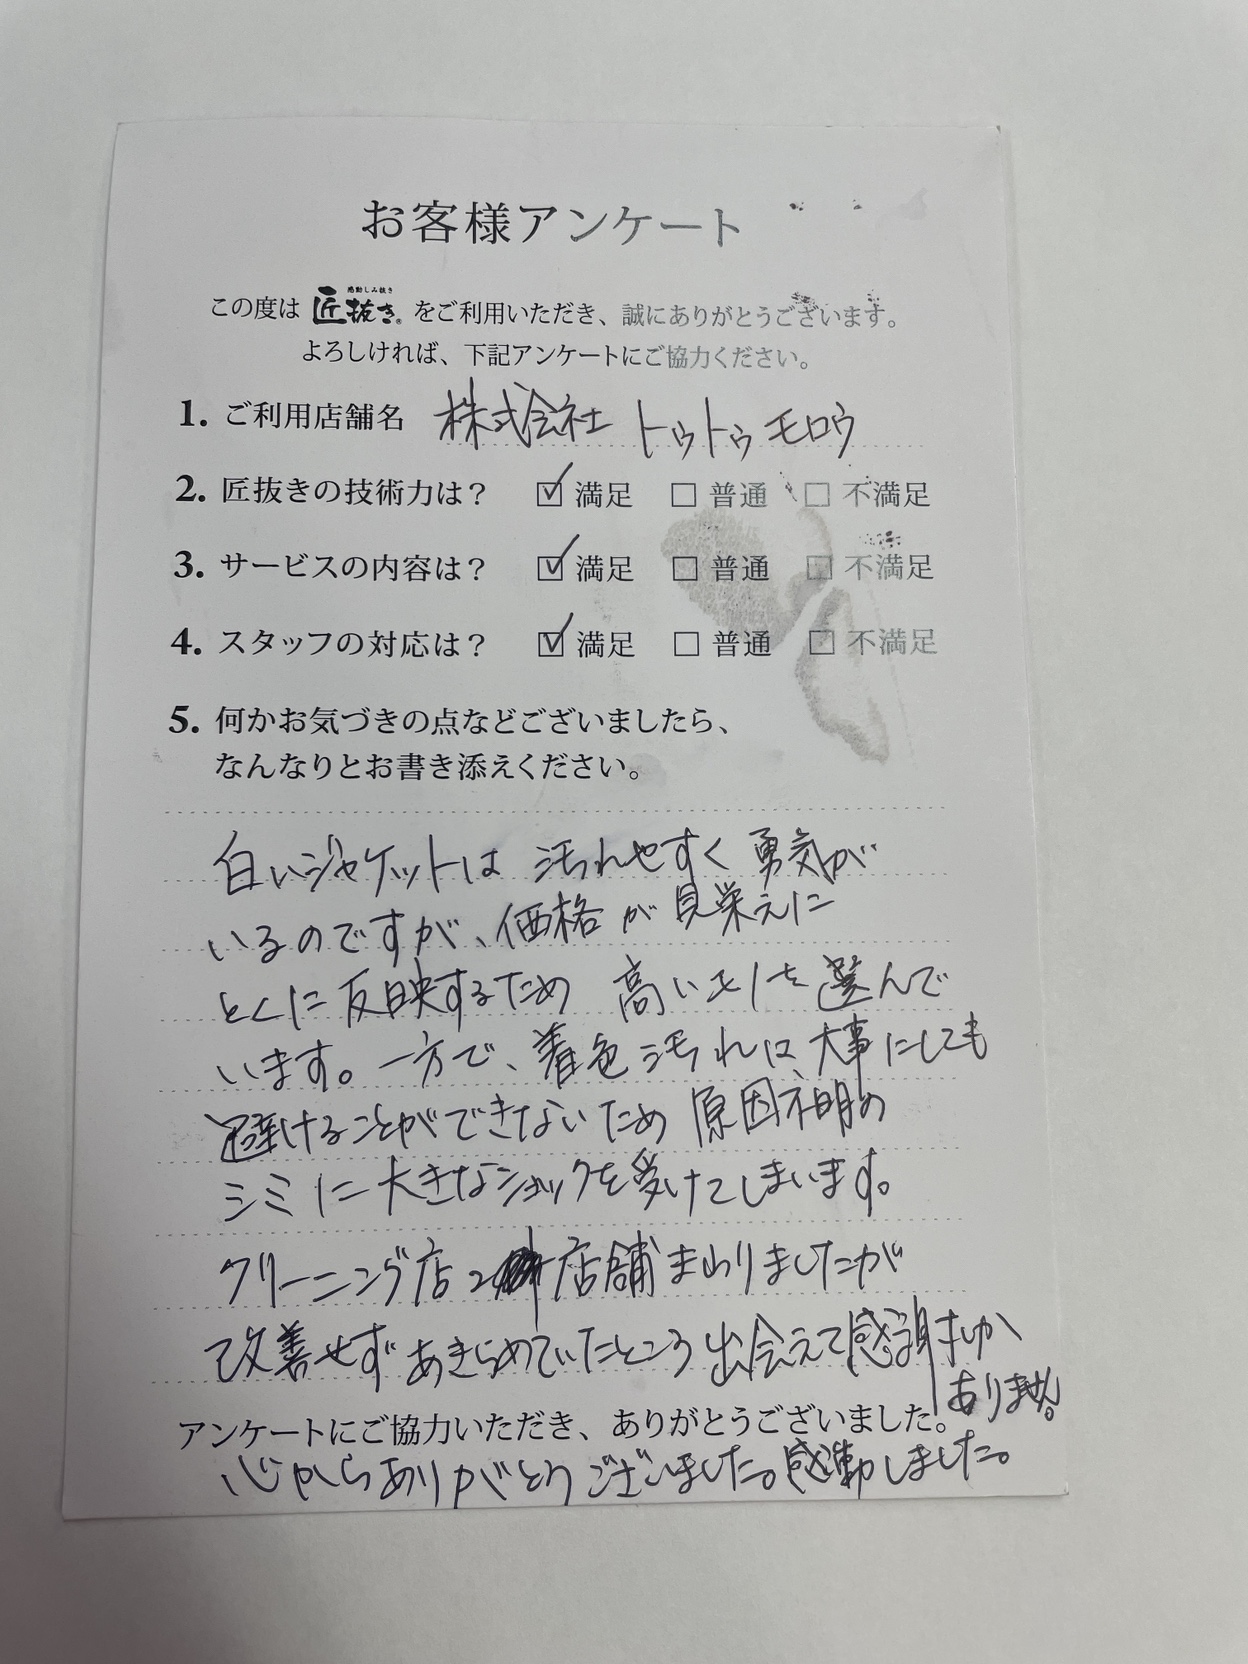 お客様アンケート
感動しみ抜き
この度は 匠抜き® をご利用いただき、誠にありがとうございます。
よろしければ、下記アンケートにご協力ください。
1. ご利用店舗名 株式会社 トゥトゥモロウ
2. 匠抜きの技術力は? ☑ 満足 □ 普通 □ 不満足
3. サービスの内容は? ☑ 満足 □ 普通 □ 不満足
4. スタッフの対応は? ☑ 満足 □ 普通 □ 不満足
5. 何かお気づきの点などございましたら、
なんなりとお書き添えください。
白いジャケットは 汚れやすく勇気が
いるのですが、価格が見栄えに
とくに反映するため 高いものを選んで
います。一方で、着色汚れは、大事にしても
避けることができないため 原因不明の
シミに大きなショックを受けてしまいます。
クリーニング店 2店舗まわりましたが
改善せずあきらめていたところ出会えて感謝しか
ありません。
アンケートにご協力いただき、ありがとうございました。
心からありがとうございました。感動しました。